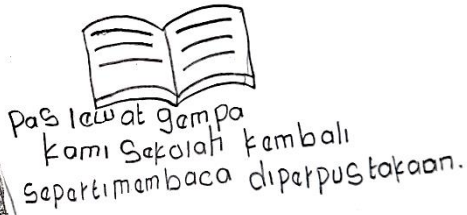 Pas lewat gempa
kami Sekolah kembali
sepertimembaca diperpustakaan.